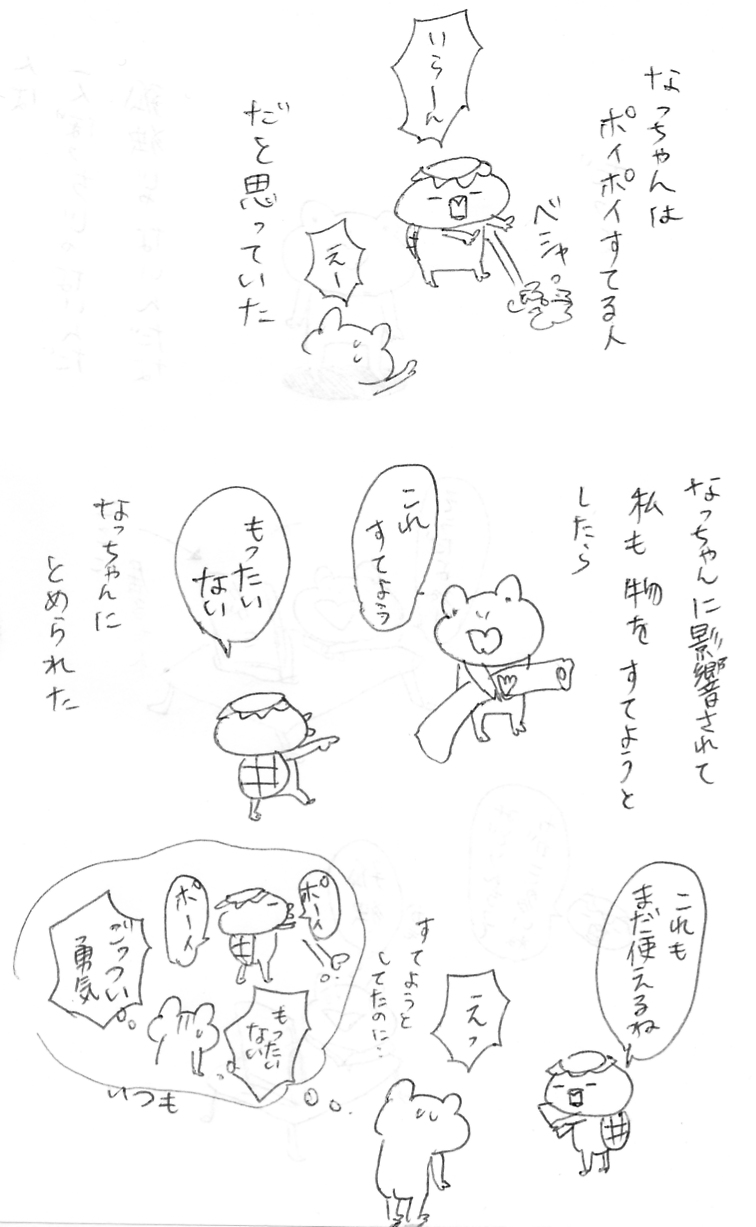 なっちゃんは
ポイポイすてる人
ベシャっ
いらーん
えー
だと思っていた
なっちゃんに影響されて
私も物をすてようと
したら
これ
すてよう
もったい
ない
なっちゃんに
とめられた
これも
まだ使えるね
えっ
すてようと
してたのに…
ポーイ
ポーイ
ごっつい
勇気
もったい
ない
いつも